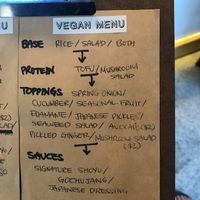 VEGAN MENU
BASE RICE / SALAD / BOTH
PROTEIN TOFU / MUSHROOM
SALAD
TOPPINGS SPRING ONION /
CUCUMBER / SEASONAL FRUIT /
EDAMAME / JAPANESE PICKLES /
SEAWEED SALAD / AVOCADO (
PICKLED GINGER / MUSHROOM SALAD
SAUCES
SIGNATURE SHOYU /
GOCHUJANG /
JAPANESE DRESSING